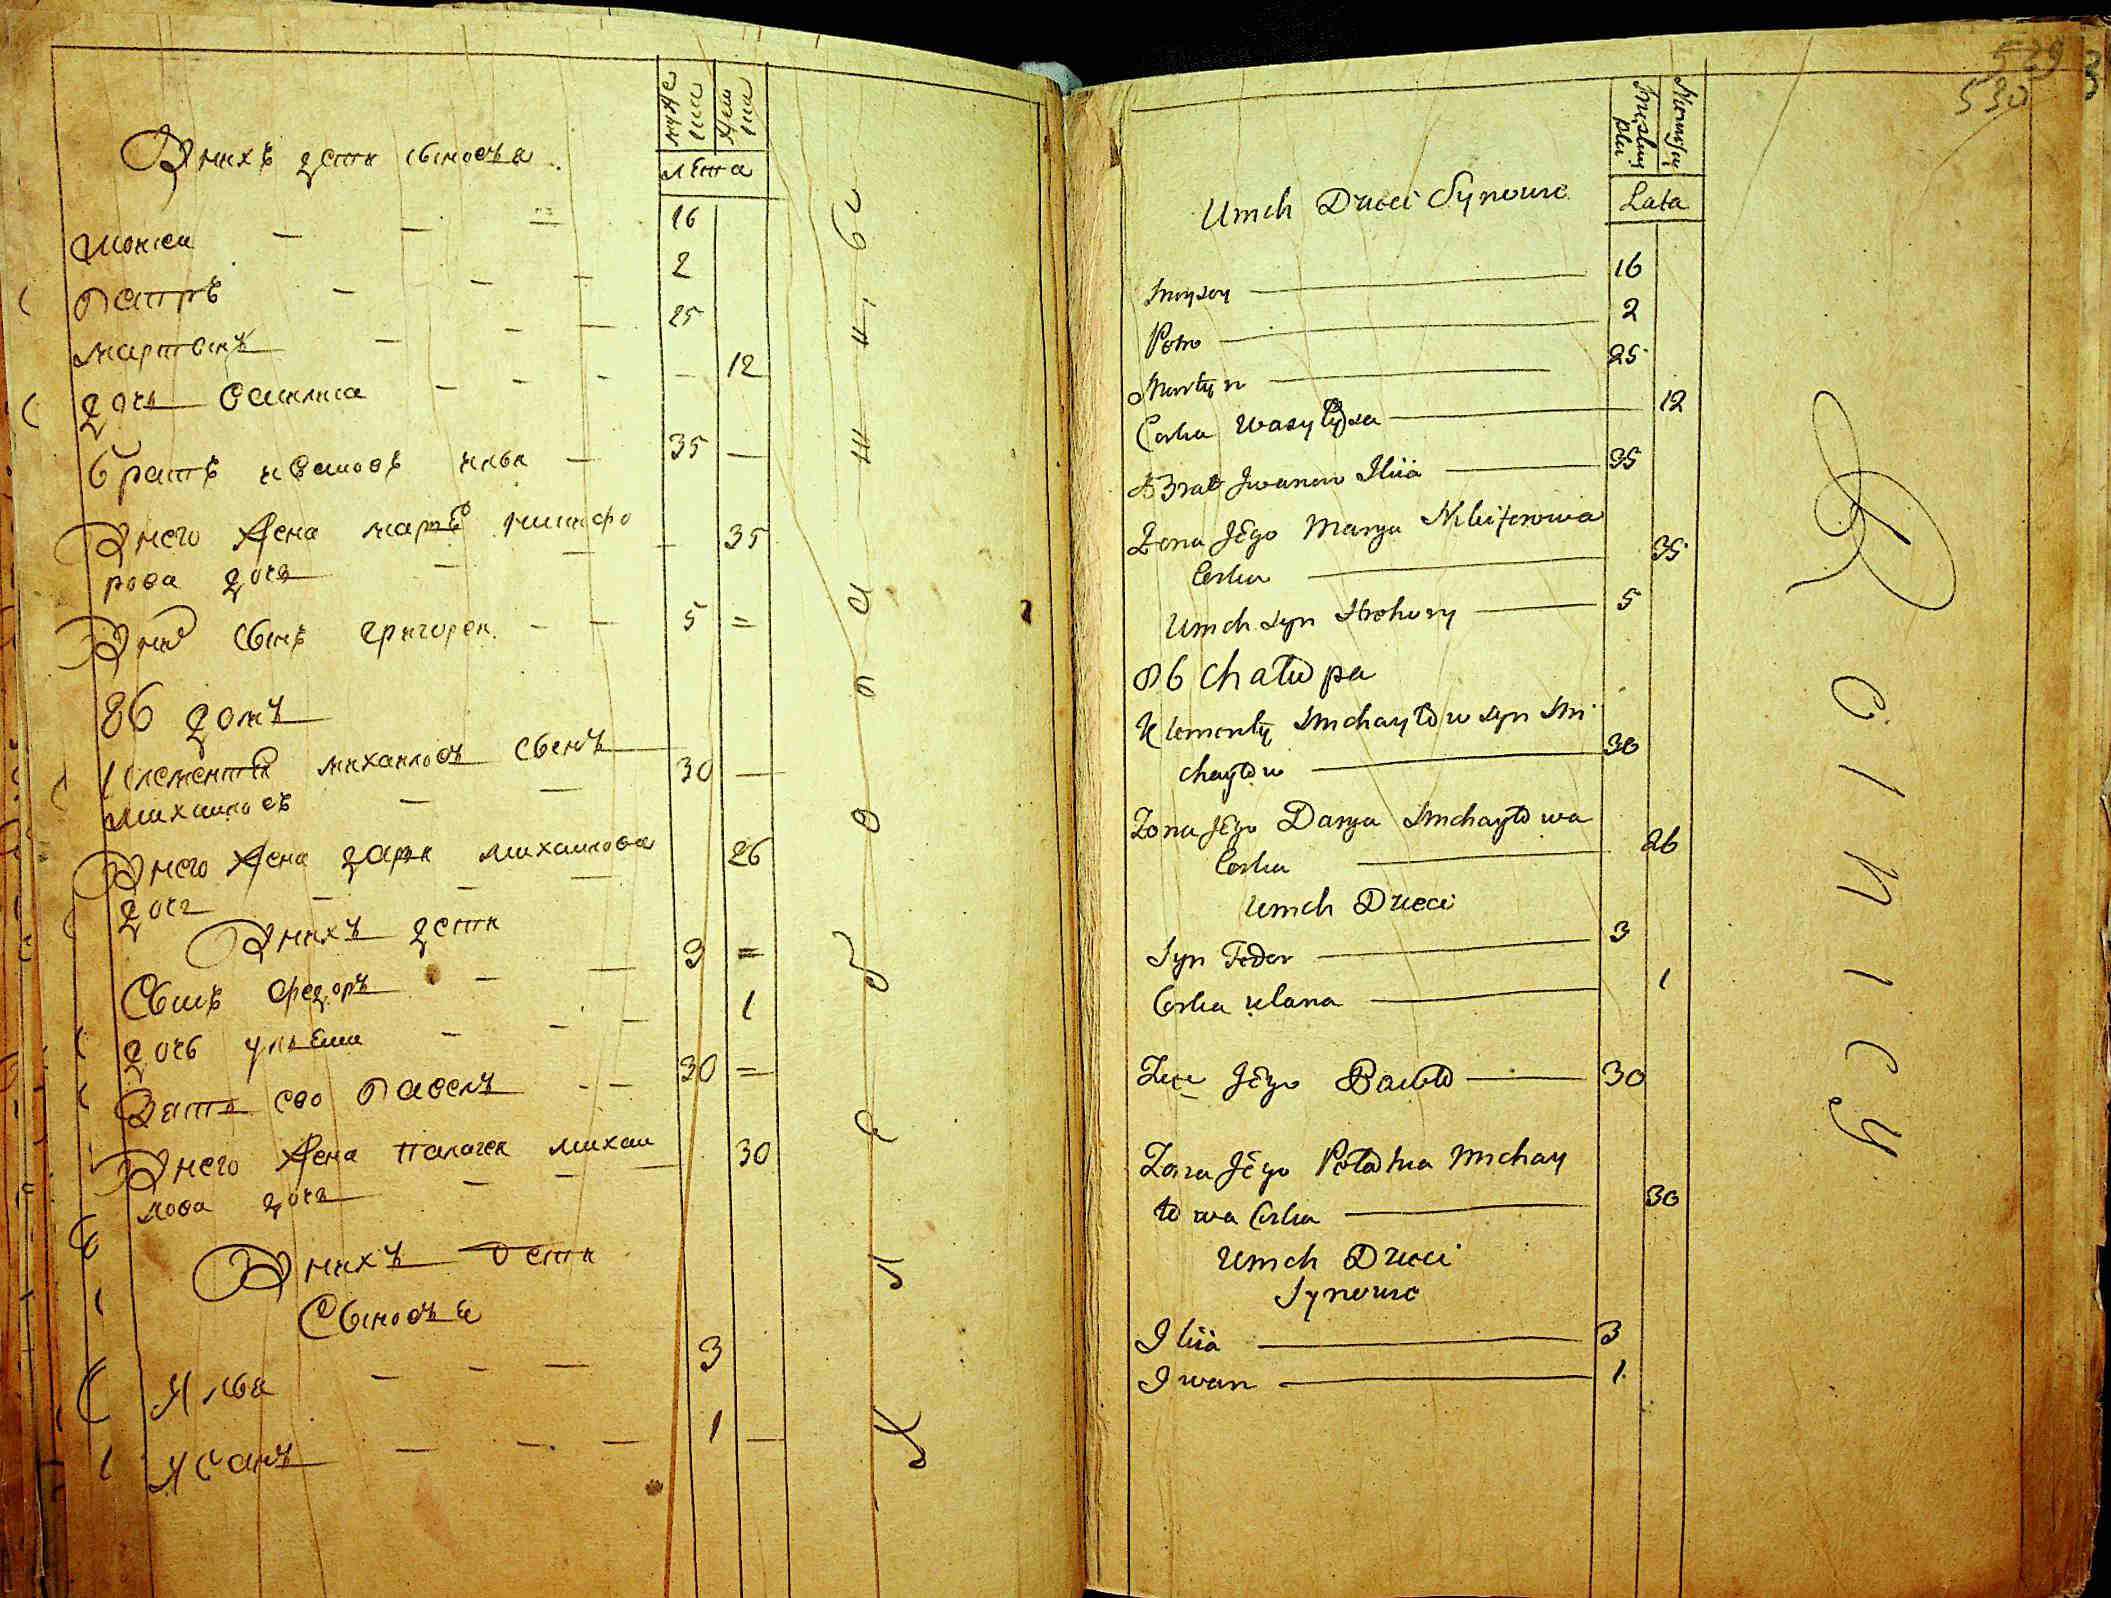 муже ска
Жен ска
лѣта
Внихъ дети сыновъя
Моисеи — — — 16
Петръ — — — 2
Мартынъ — — — 25
дочь Василиса — — — 12
братъ ивановъ илья — 35 —
Внего Жена маря никифо
рова дочь — — — 35
Вних сынъ григореи — — 5 =
86 домъ
Клементеи михаиловъ сынъ
михаиловъ — — 30 —
Внего Жена даря михаилова
дочь — — — 26
Внихъ дети
Сынъ Федоръ — — 3 =
дочь ульяна — — — 1
Зять ево Павелъ — — 30 =
Внего Жена палагея михаи
лова дочь — — — 30
Внихъ дети
Сыновъя
Илья — — — 3
Иванъ — — — 1 —
529
530
Lata
Umch Dzieci Synowie
Moysey — 16
Petro — 2
Martyn — 25
Corka Wasylysa — 12
Brat Jwanow Iliia — 35
Zona Jego Marya Nikiforowa
Corka — 35
Umch syn Hrehory — 5
86 Chałupa
Klementy Michayłow syn Mi
chayłow — 30
Zona Jego Darya Michayłowa
Corka — 26
Umch Dzieci
Syn Fedor — 3
Corka ulana — 1
Zięc Jego Paweł — 30
Zona Jego Pełahia Michay
łowa Corka — 30
Umch Dzieci
Synowie
Iliia — 3
Iwan — 1